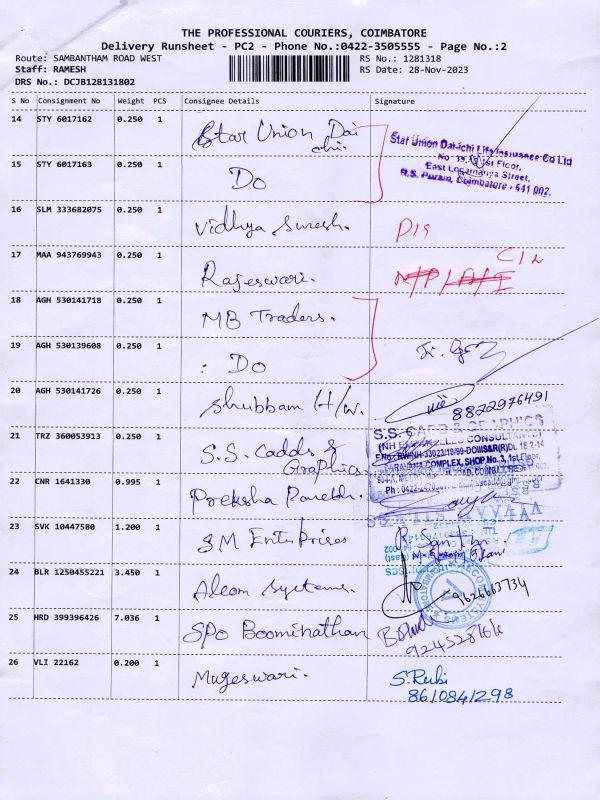 THE PROFESSIONAL COURIERS, COIMBATORE
Delivery Runsheet - PC2 - Phone No.:0422-3505555 - Page No.:2
Route: SAMBANTHAM ROAD WEST
RS No.: 1281318
Staff: RAMESH
RS Date: 28-Nov-2023
DRS No.: DCJB128131802
S No Consignment No Weight PCS Consignee Details Signature
14 STY 6017162 0.250 1 Star Union Dai
chi
Star Union Dai-ichi Life Insurance Co Ltd
1st Floor,
East Lokamanya Street,
R.S. Puram, Coimbatore - 641 002.
15 STY 6017163 0.250 1 Do
16 SLM 333682075 0.250 1 Vidhya Suresh.
17 MAA 943769943 0.250 1 Rajeswari.
18 AGH 530141718 0.250 1 MB Traders.
19 AGH 530139608 0.250 1 Do
20 AGH 530141726 0.250 1 Shubbam H/w.
8822976491
21 TRZ 360053913 0.250 1 S.S. Cadds &
Graphics.
S.S. CADD & GRAPHICS
COMPLEX, SHOP No. 3, 1st Floor,
22 CNR 1641330 0.995 1 Preksha
23 SVK 10447580 1.200 1 SM Enterprises
24 BLR 1250455221 3.450 1 Alcom Systems.
9626663734
25 HRD 399396426 7.036 1 SPO Boominathan
26 VLI 22162 0.200 1 Mugeswari.
S.Rubi
8610841298